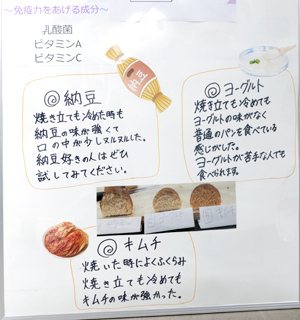 ～免疫力をあげる成分～
乳酸菌
ビタミンA
ビタミンC
◎納豆
焼き立ても冷めた時も
納豆の味が強くて
口の中が少しヌルヌルした。
納豆好きの人はぜひ
試してみてください。
納豆
◎ヨーグルト
焼き立ても冷めても
ヨーグルトの味がなく
普通のパンを食べている
感じがした。
ヨーグルトが苦手な人でも
食べられます。
◎キムチ
焼いた時によくふくらみ
焼き立ても冷めても
キムチの味が強かった。